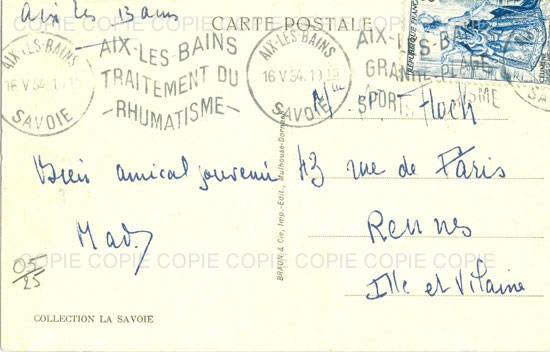 Aix les Bains
CARTE POSTALE
AIX-LES-BAINS
16 V 54. 19 15
SAVOIE
AIX-LES-BAINS
TRAITEMENT DU
-RHUMATISME-
AIX-LES-BAINS
16 V 54. 19 15
SAVOIE
AIX-LES-BAINS
GRANDE PLAGE
SPORTS
REPUBLIQUE FRANÇAISE
Floch
Bien amical souvenir
Mad.
43 rue de Paris
Rennes
Ille et Vilaine
05/25
COPIE COPIE COPIE COPIE COPIE COPIE COPIE COPIE
COPIE COPIE COPIE COPIE COPIE COPIE COPIE COPIE
BRAUN & Cie, Imp.-Edit., Mulhouse-Dornach
COLLECTION LA SAVOIE